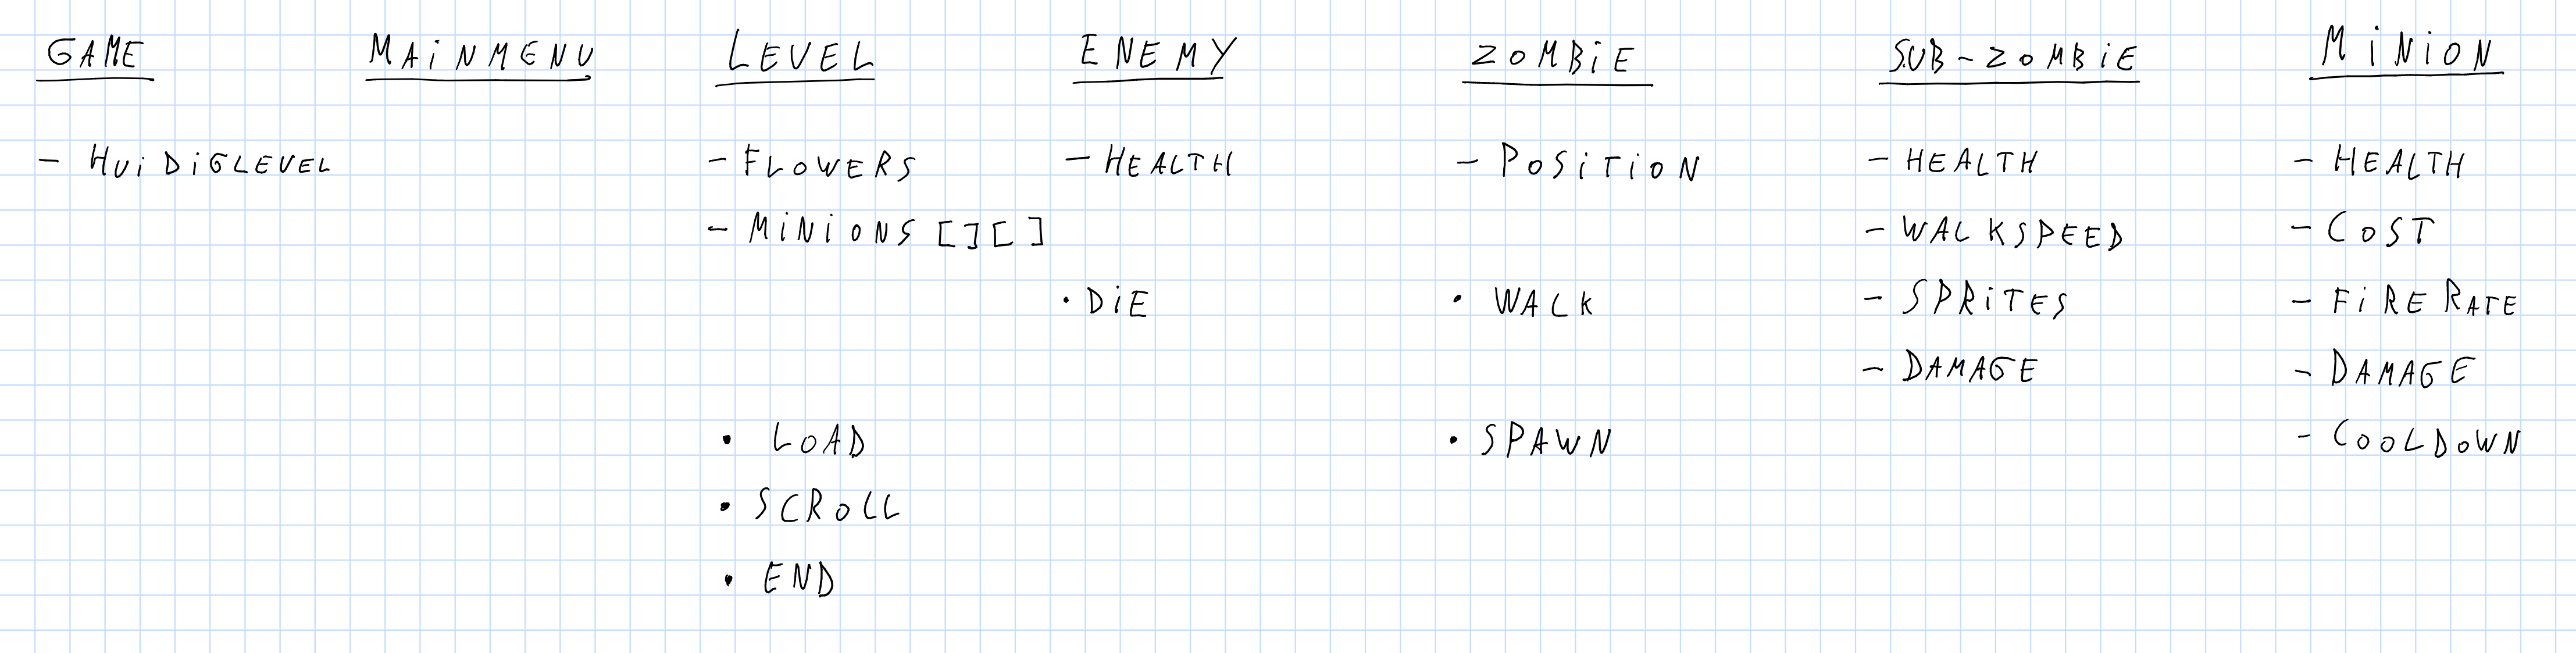 GAME
- HUiDiGLEVEL
MAiNMENU
LEVEL
- FLOWERS
- MiNiONS [][]
• LOAD
• SCROLL
• END
ENEMY
- HEALTH
• DiE
ZOMBiE
- POSiTiON
• WALK
• SPAWN
SUB-ZOMBiE
- HEALTH
- WALKSPEED
- SPRiTES
- DAMAGE
MiNiON
- HEALTH
- COST
- FiRE RATE
- DAMAGE
- COOLDOWN